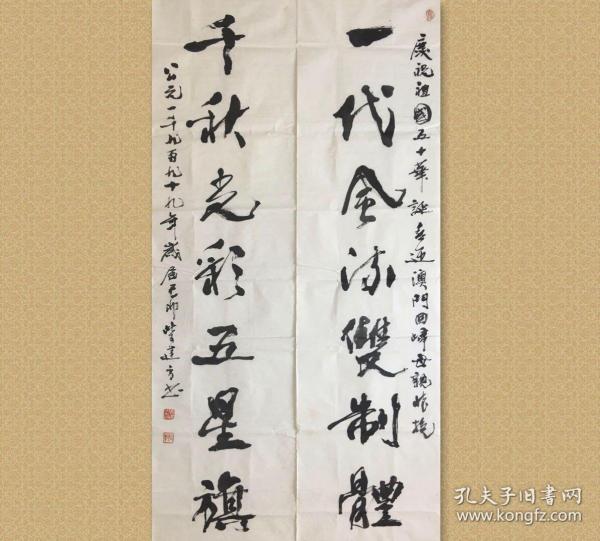 慶祝祖國五十華誕喜迎澳門回歸母親懷抱
一代風流雙制體
千秋光彩五星旗
公元一千九百九十九年歲屆己卯
建方書
孔夫子旧书网
www.kongfz.com